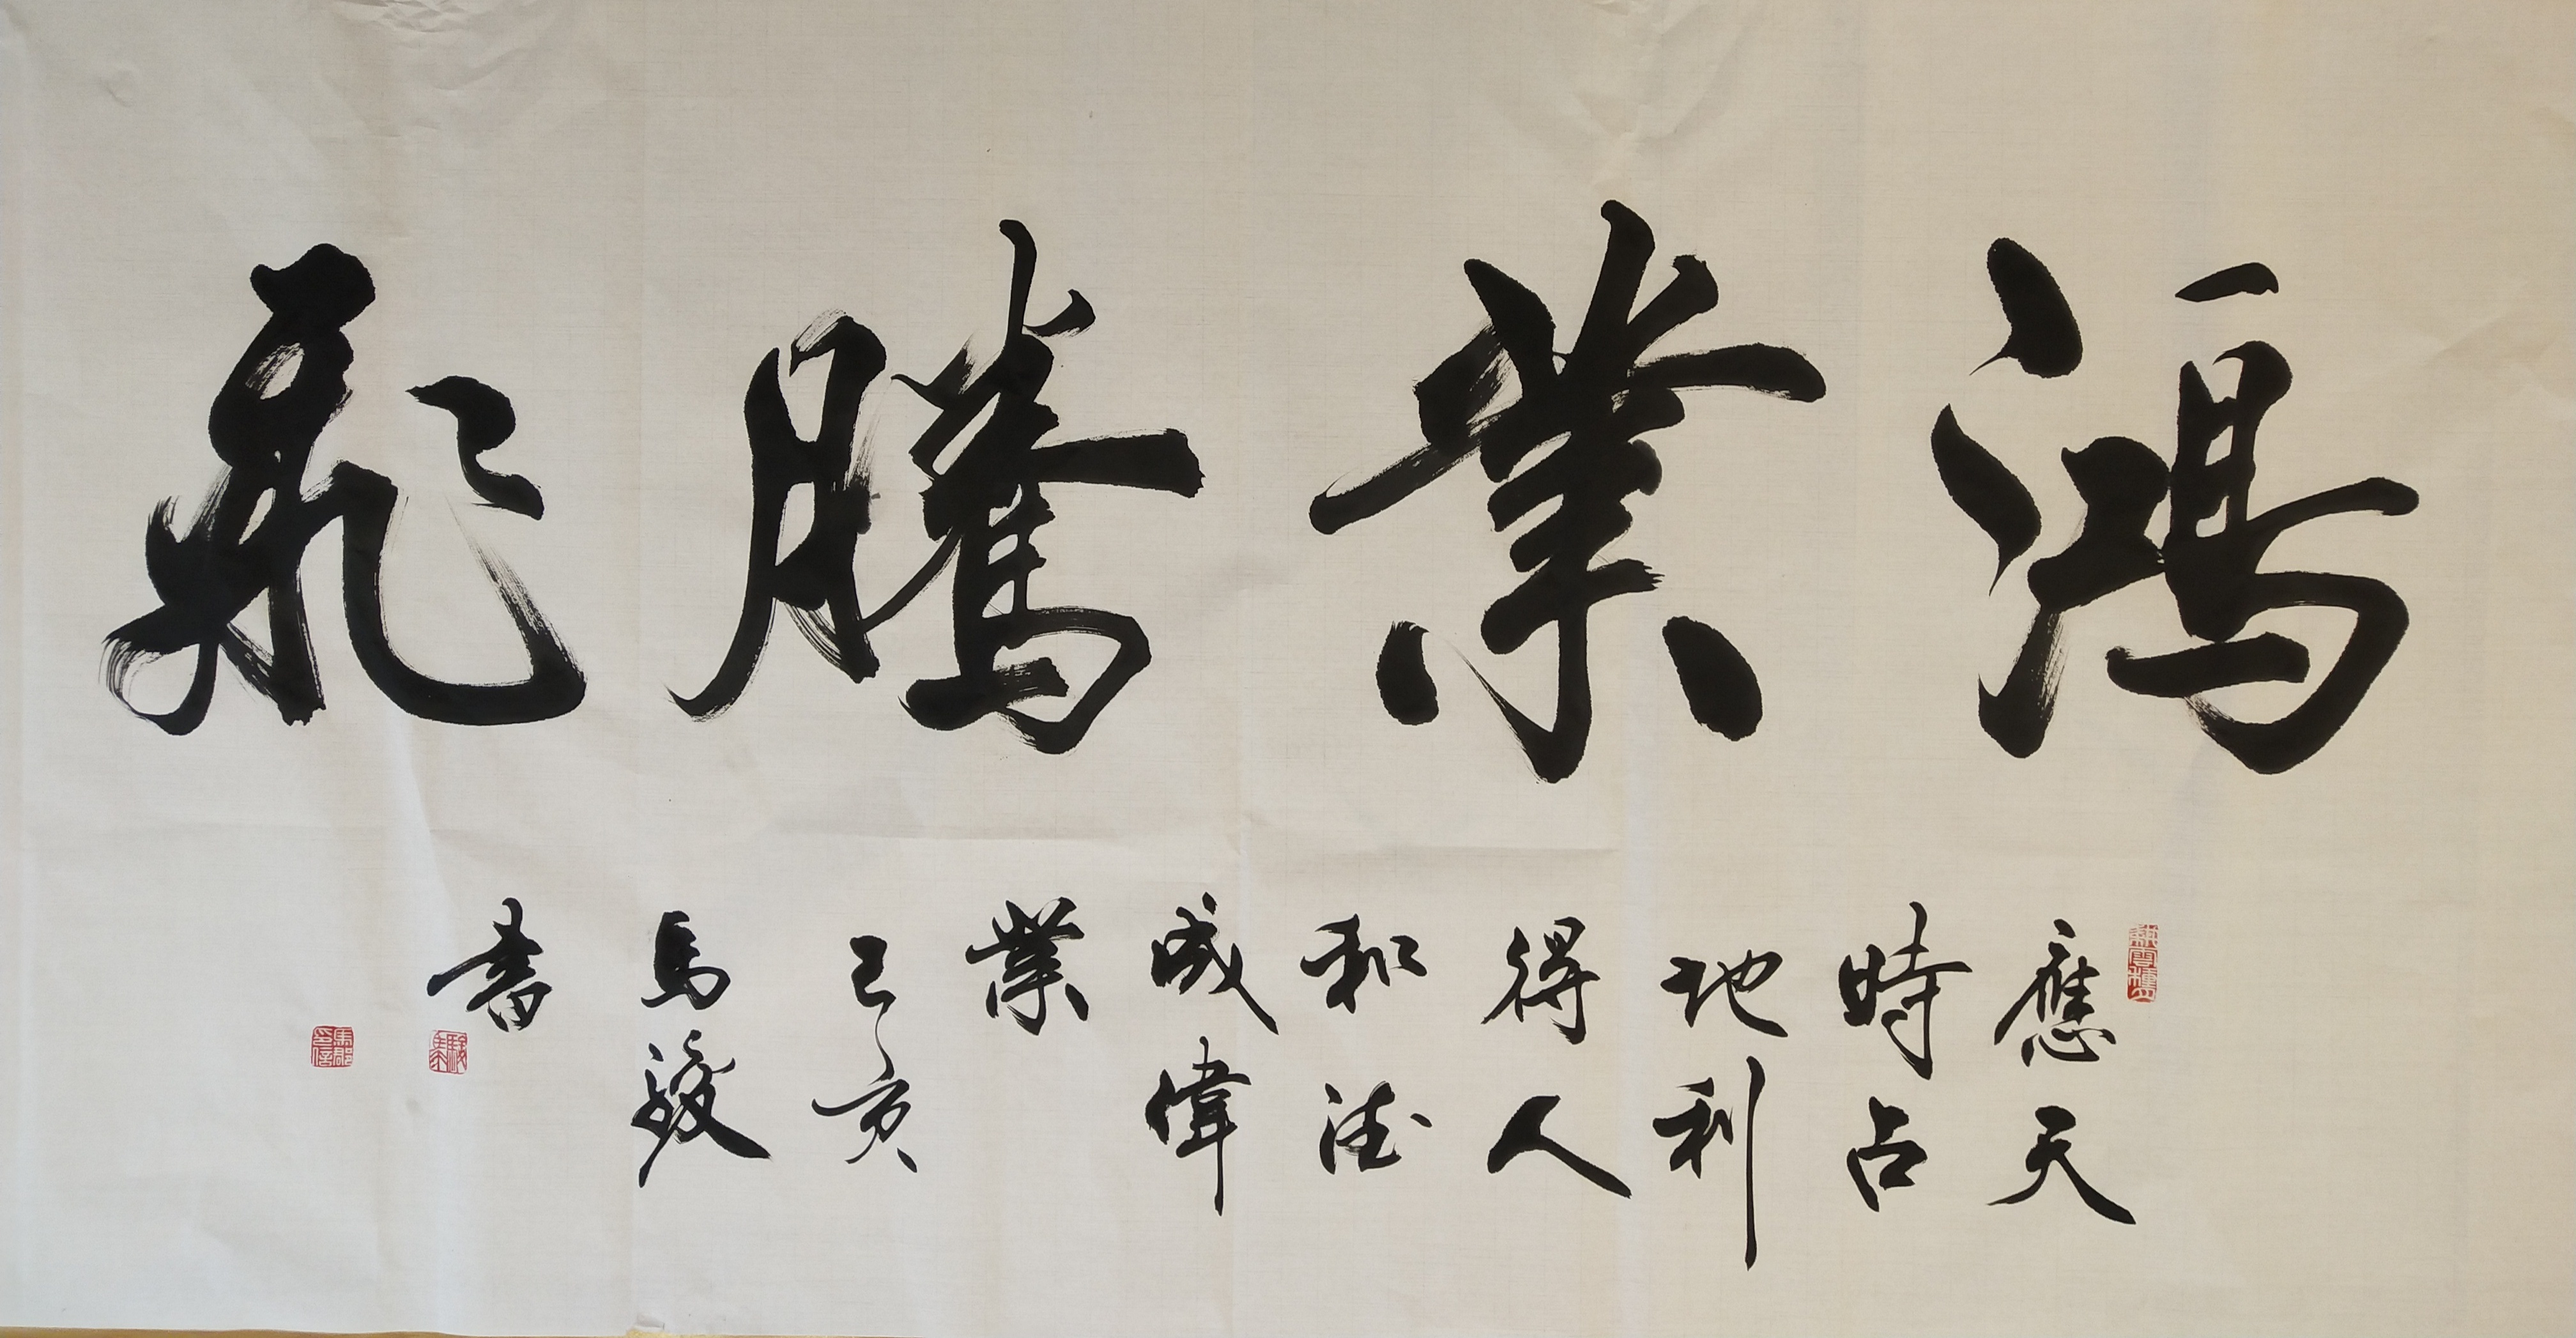 鴻業騰飛
應天
時占
地利
得人
和
成偉
業
己亥
馬駿
書